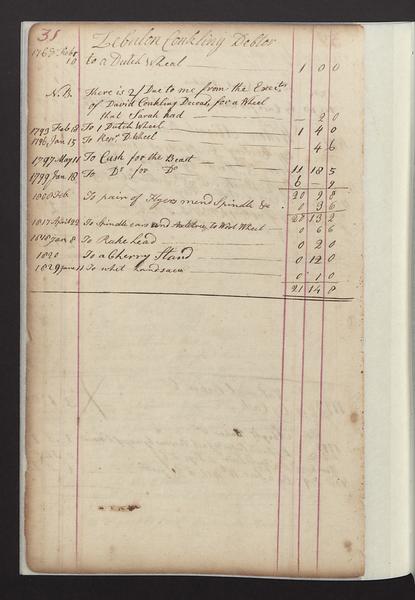 35
Zebulon Conkling Debtor
10 to a Dutch Wheal 1 0 0
N.B. there is 2/ Due to me from the Exects
of David Conkling Deceas, for a Wheel
that Sarah had — 2 0
1793 Feb 18 To 1 Dutch Wheel 1 4 0
1796, Jan 15 To Repr. D. Wheel — 4 6
1797 May 11 To Cash for the Beast 11 18 5
1799 Jan 18 To Do for Do 6 — 9
20 9 8
1800 Feb To pair of Flyers mend Spindle &c 0 3 6
20 13 2
1817 April 22 To Spindle ears and to Wool Wheel 0 6 6
1818 Jan 8 To Rake head 0 2 0
1820 To a Cherry Stand 0 12 0
1829 June 11 To whet handsaw 0 1 0
21 14 8